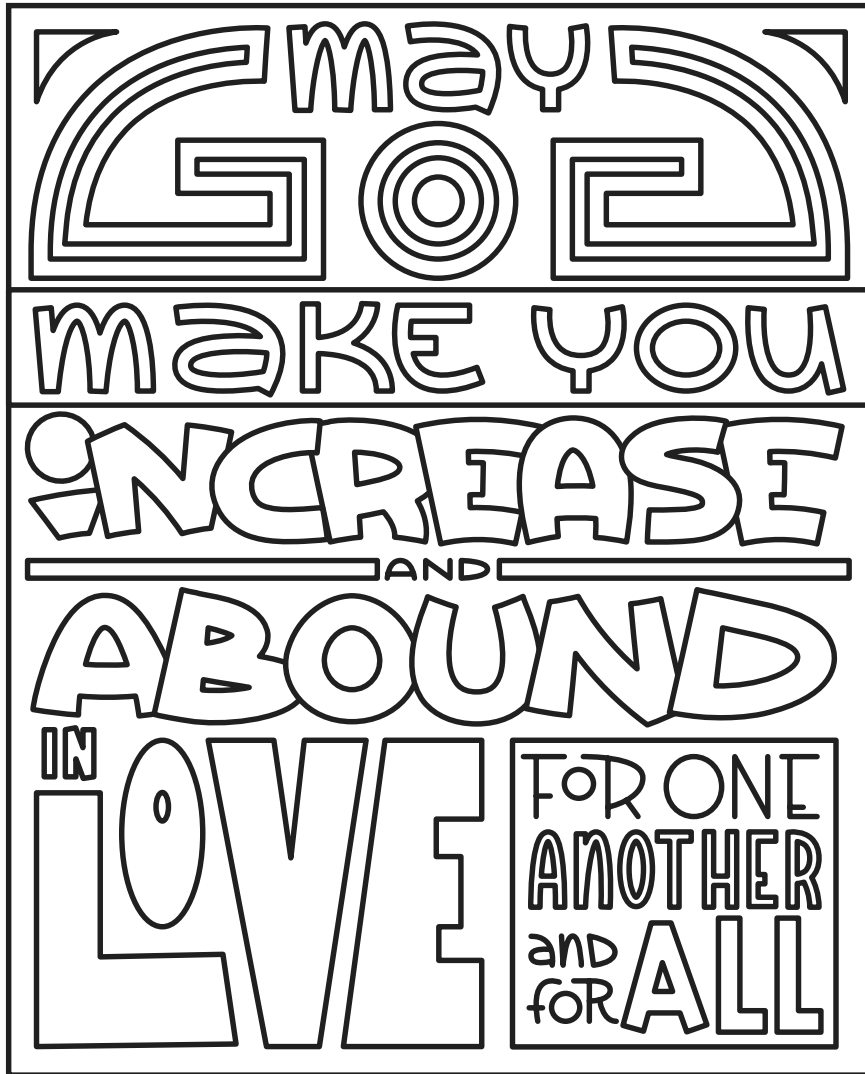 may
GOD
make you
iNCREASE
AND
ABOUND
IN
LOVE
FoR ONE
ANOTHER
and
foR ALL